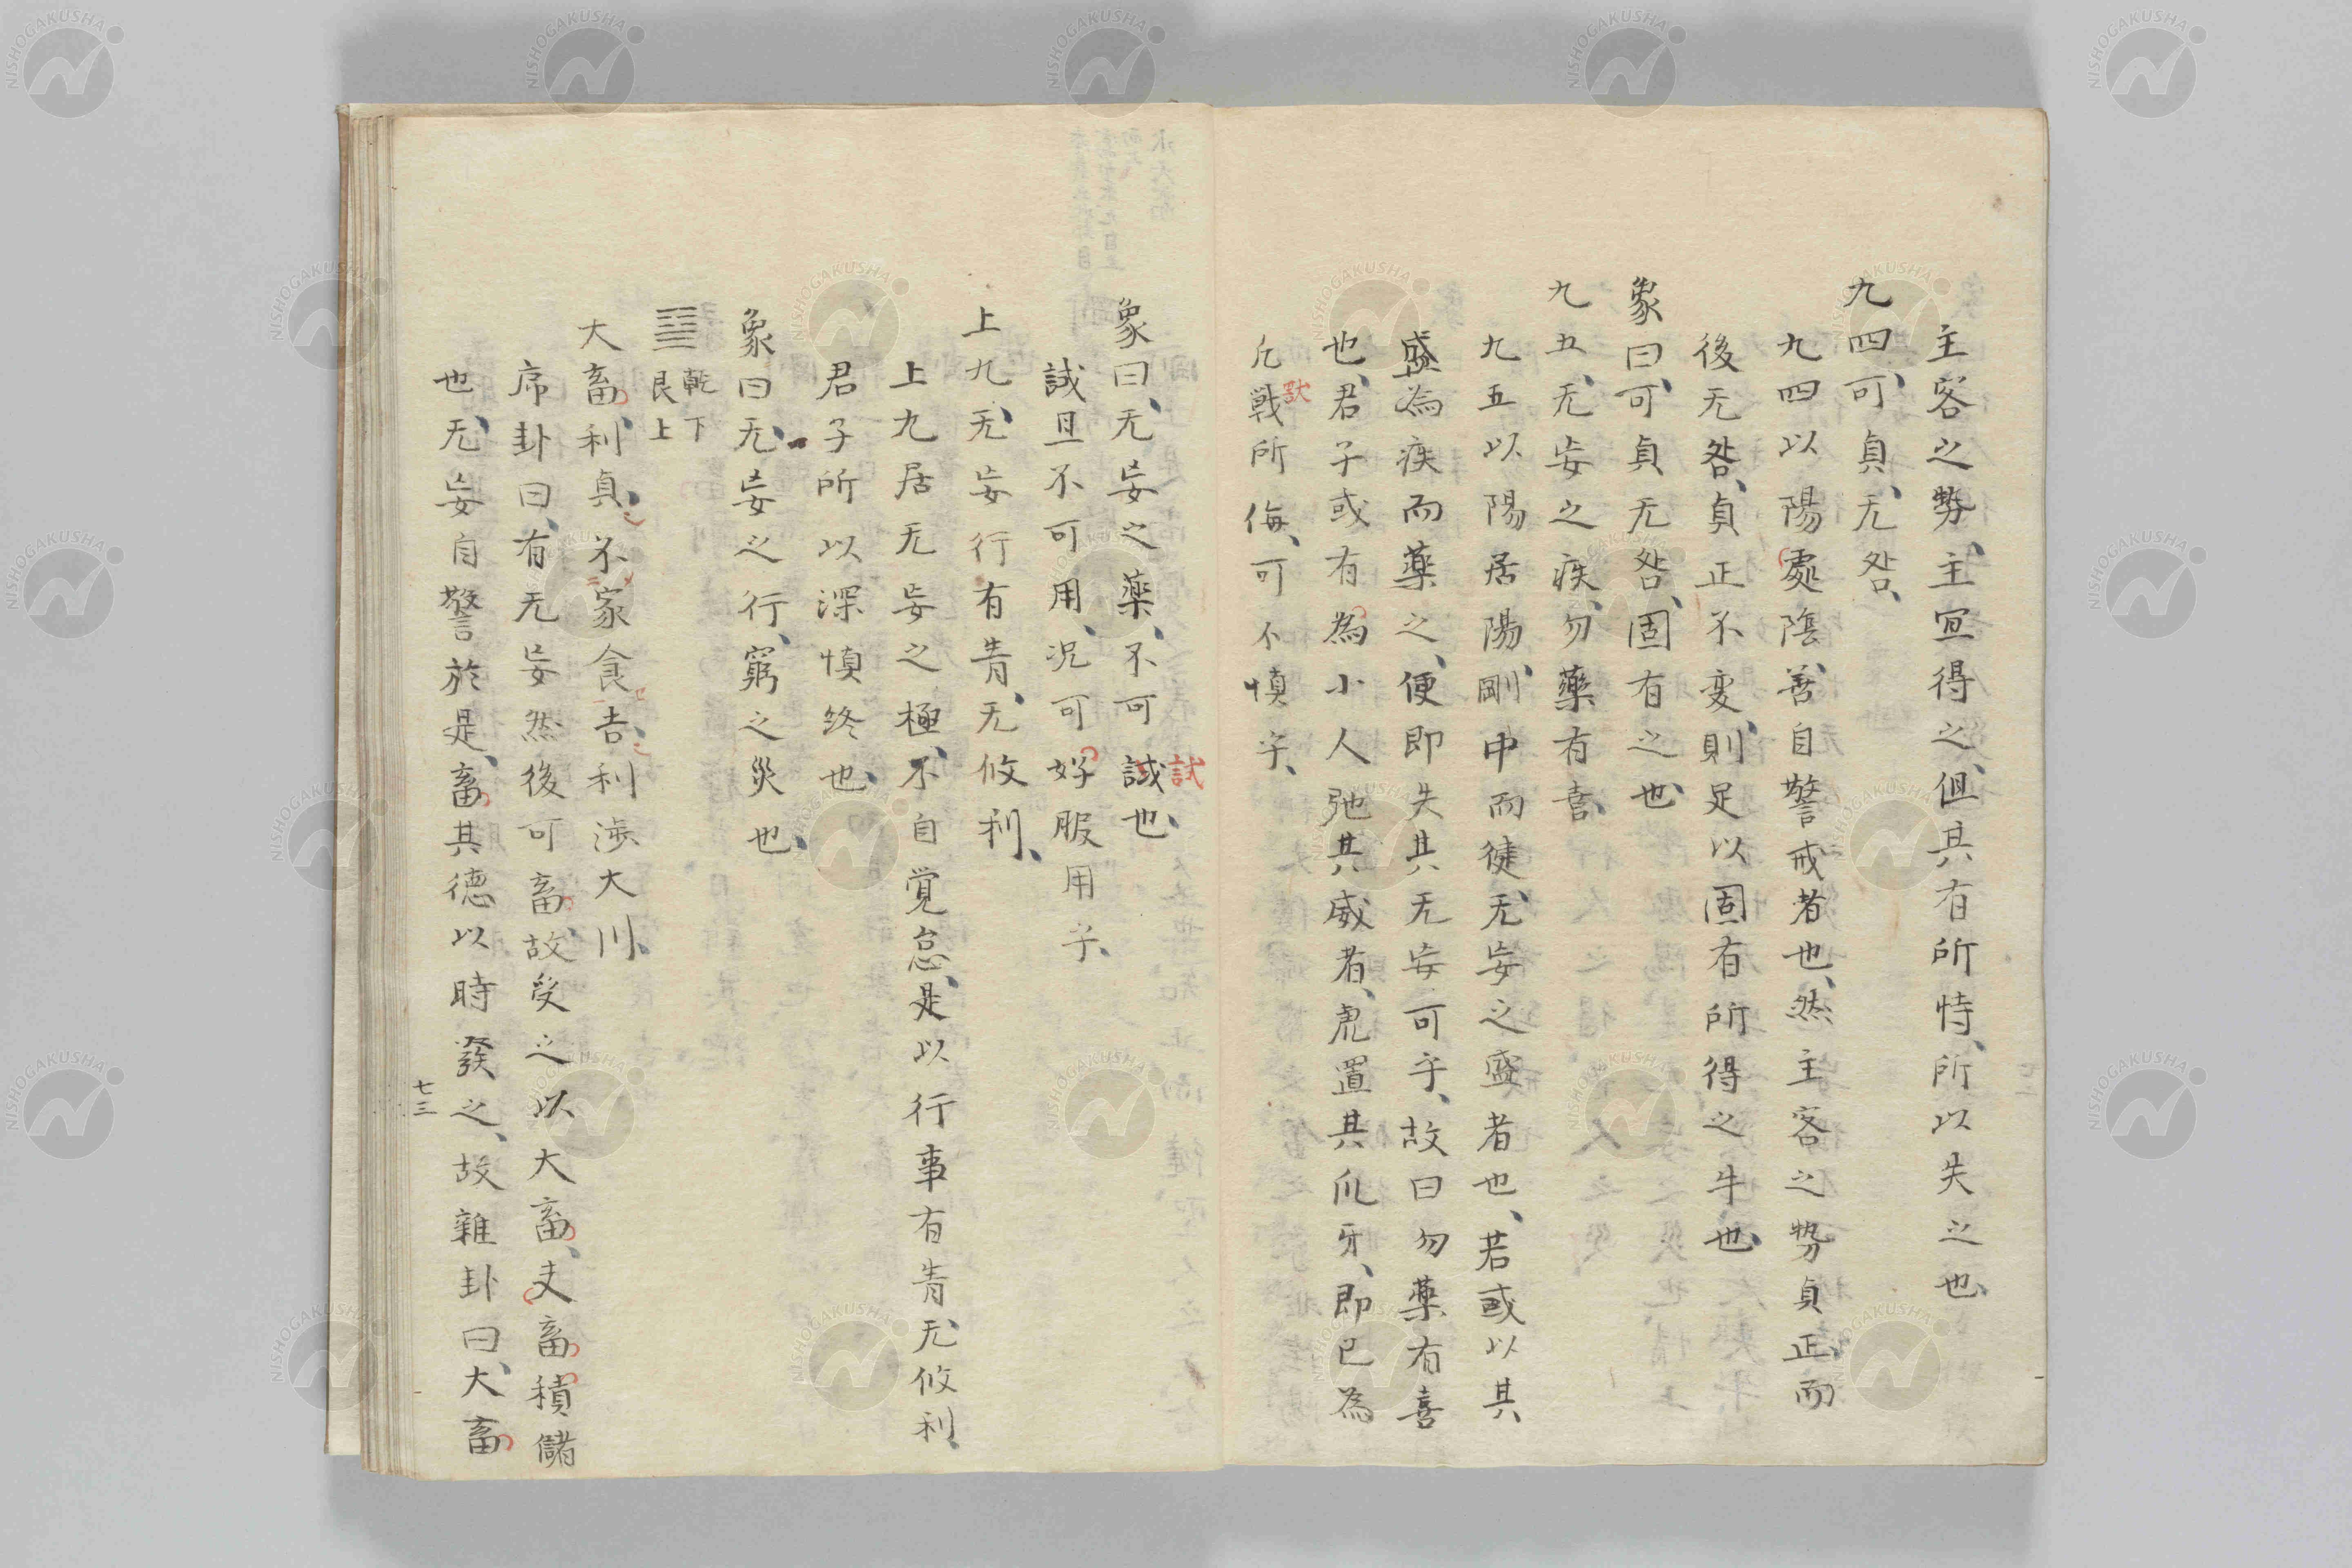 主客之勢、主宜得之、但其有所恃、所以失之也、
九四、可貞、无咎、
九四以陽處陰、善自警戒者也、然主客之勢貞正、而
後无咎、貞正不変、則足以固有所得之牛也、
象曰、可貞无咎、固有之也、
九五、无妄之疾、勿藥有喜、
九五以陽居陽、剛中而健、无妄之盛者也、若或以其
盛為疾而藥之、便即失其无妄、可乎、故曰勿藥有喜
也、君子或有為小人弛其威者、虎置其爪牙、即已為
凡戦所侮、可不慎乎、
獣
象曰、无妄之藥、不可誠也、
試
誠且不可用、况可好服用乎、
上九、无妄行有眚、无攸利、
上九居无妄之極、不自覚怠、是以行事有眚、无攸利、
君子所以深慎終也、
象曰、无妄之行、窮之災也、
乾下
艮上
大畜、利貞、不家食、吉、利渉大川、
序卦曰、有无妄然後可畜、故受之以大畜、夫畜積儲
也、无妄自警於是、畜其徳以時發之、故雜卦曰、大畜
七三
NISHOGAKUSHA